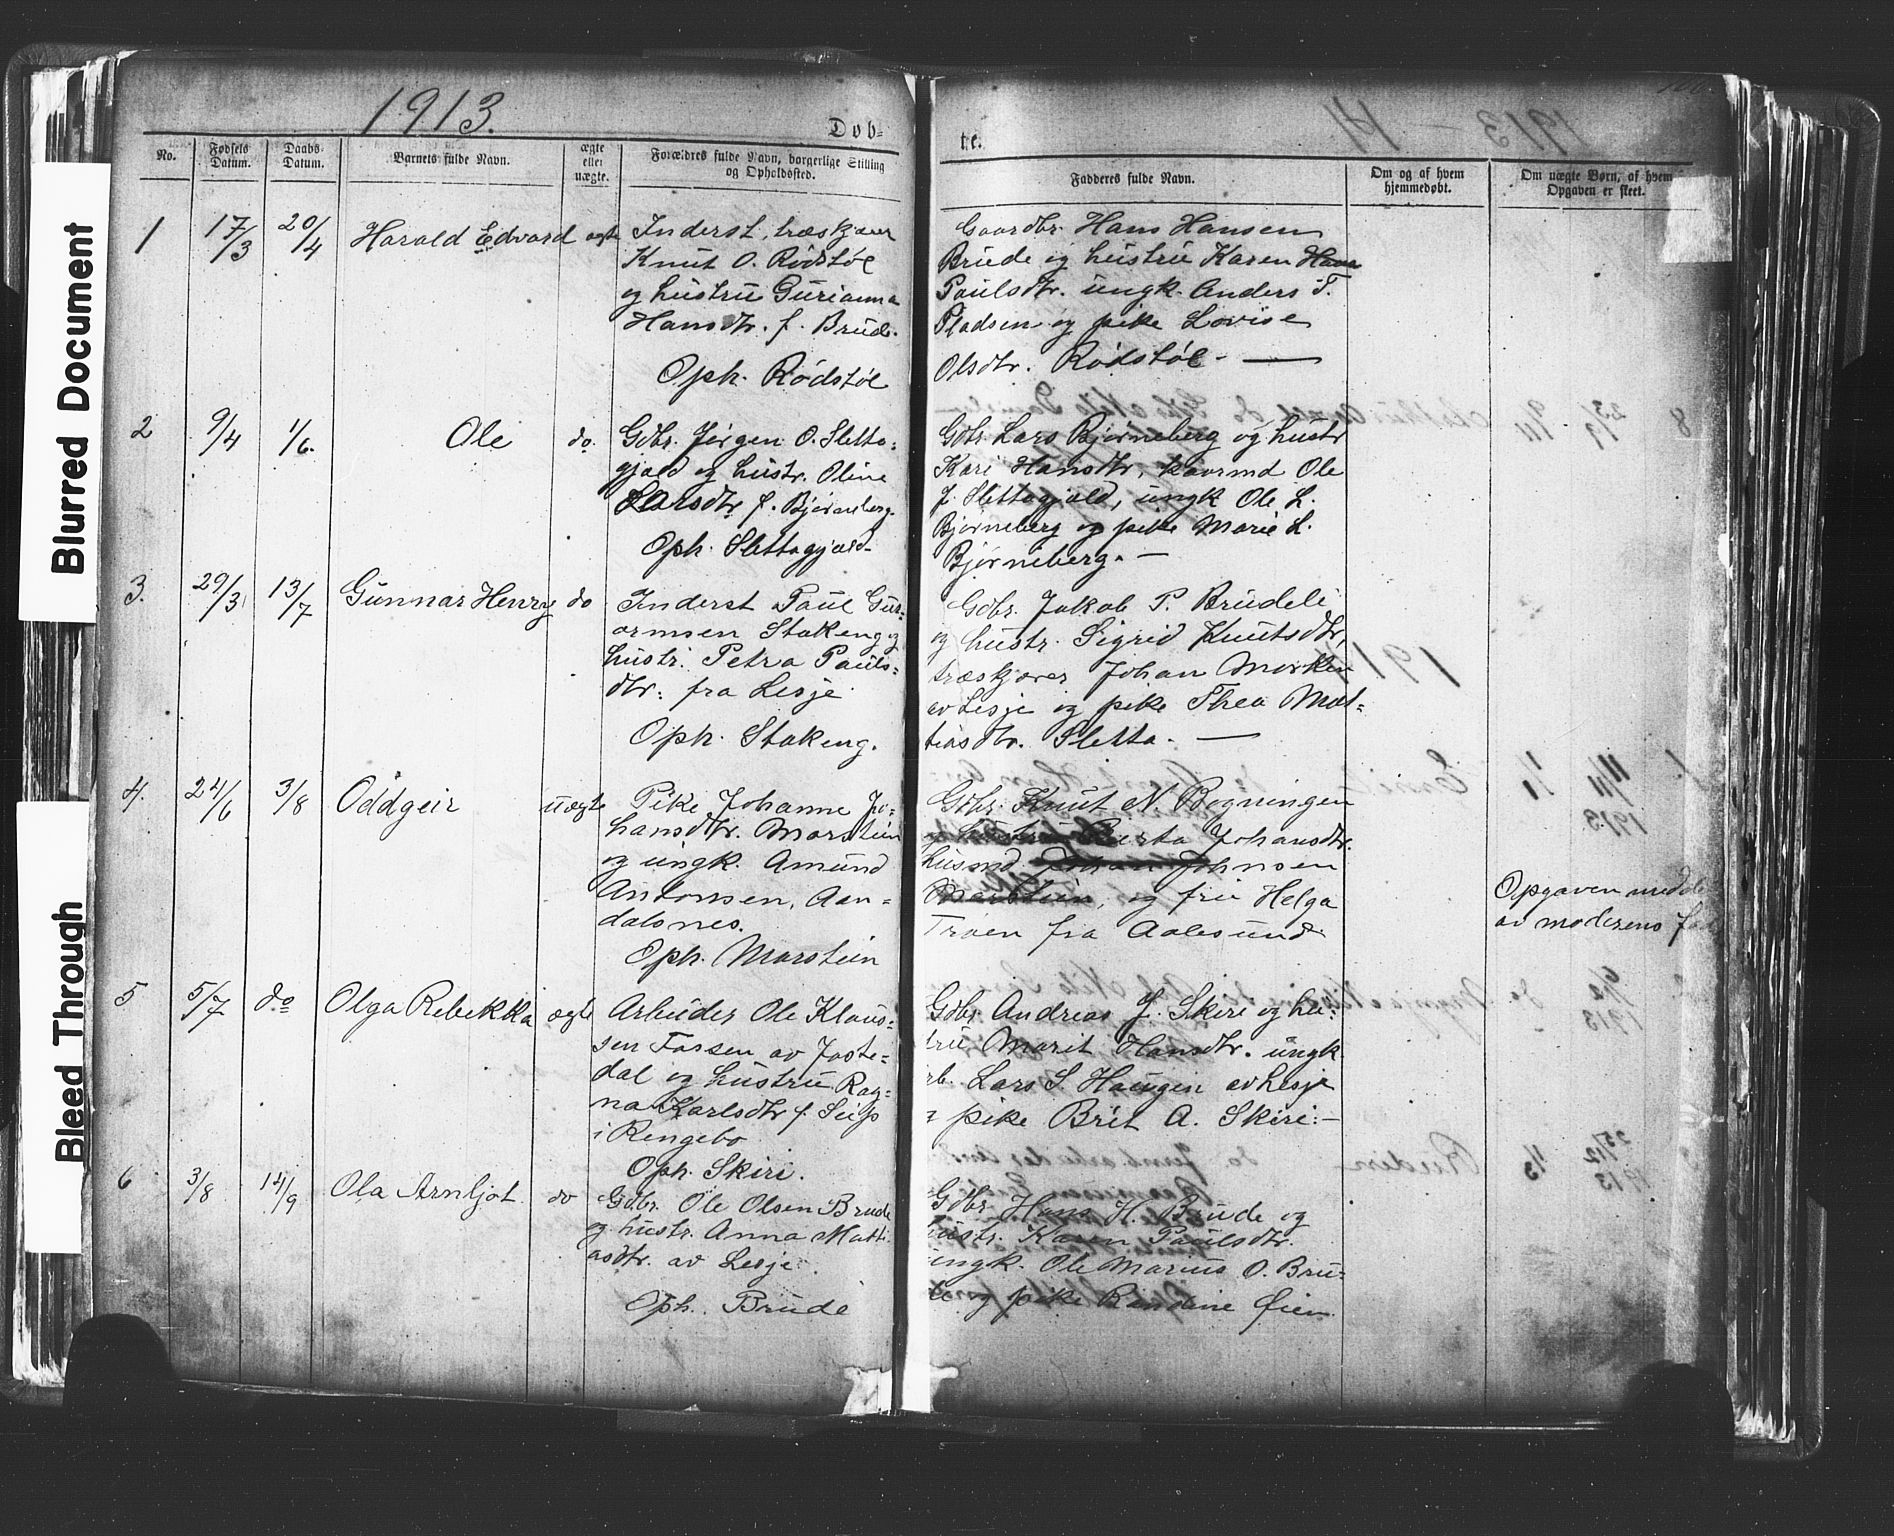 1913.
Døb-
te.
No.
Fødsels Datum.
Daabs- Datum.
Barnets fulde Navn.
ægte eller uægte.
Forældres fulde Navn, borgerlige Stilling og Opholdssted.
Fadderes fulde Navn.
Om og af hvem hjemmedøbt.
Om uægte Børn, af hvem Opgaven er skeet.
1 17/3 20/4 Harald Edvard ægte
Inderst, træskjærer
Knut O. Rødstøl
og hustru Gurianna
Hansdtr. f. Brude.
Oph. Rødstøl
Gaardbr. Hans Hansen
Brude og hustru Karen
Paulsdtr. ungk. Anders T.
Pladsen og pike Lovise
Olsdtr. Rødstøl. —
2 9/4 1/6. Ole do.
Gdbr. Jørgen O. Sletta-
gjærd og hustr. Oline
Larsdtr f. Bjørneberg.
Oph. Slettagjærd
Gdbr. Lars Bjørneberg og hustr
Kari Hansdtr, kaarmd Ole
J. Slettagjærd, ungk Ole L.
Bjørneberg og pike Marie L.
Bjørneberg. —
3. 29/3 13/7 Gunnar Henry do
Inderst Paul Gut-
ormsen Stokeng og
hustr. Petra Pauls-
dtr. fra Lesje.
Oph. Stokeng.
Gdbr. Jakob P. Brudeli
og hustr. Sigrid Knutsdtr,
træskjærer Johan Morken
av Lesje og pike Thea Mat-
tiasdtr. Sletta. —
4. 24/6 3/8 Oddgeir uægte
Pike Johanne Jo-
hansdtr. Marstein
og ungk. Amund
Antonsen, Aan-
dalsnes.
Oph. Marstein
Gdbr. Knut N. Bogningen
og hustru Berta Johansdtr.
husmd. Johan Johnsen
Marstein, og fru Helga
Troen fra Aalesund.
Opgaven meddelt
av moderens
5 5/7 do Olga Rebekka ægte
Arbeider Ole Klaus-
sen Fossen av Joste-
dal og hustru Rag-
na Karlsdtr f.
i Ringebo
Oph. Skiri.
Gdbr Andreas J. Skiri og hu-
stru Marit Hansdtr. ungk.
arb. Lars S. Haugen av Lesje
og pike Brit A. Skiri. —
6 3/8 14/9 Ola Arnljot do
Gdbr. Ole Olsen Brude
og hustr. Anna Matti-
asdtr. av Lesje.
Oph. Brude
Gdbr Hans H. Brude og
hustr. Karen Paulsdtr.
ungk. Ole Marius O. Bru-
de og pike Randine Øien
Blurred Document
Bleed Through